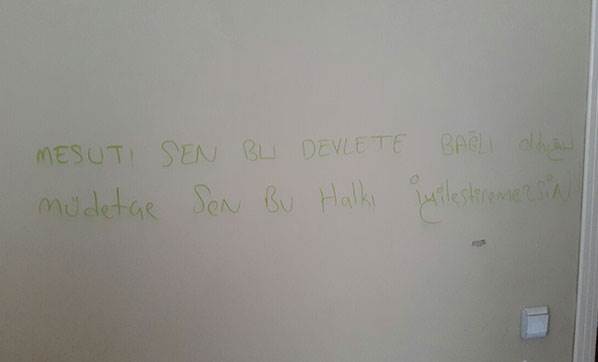 MESUT! SEN BU DEVLETE BAĞLI olduğun
müdetçe SeN Bu Halkı iyileştiremezSiN